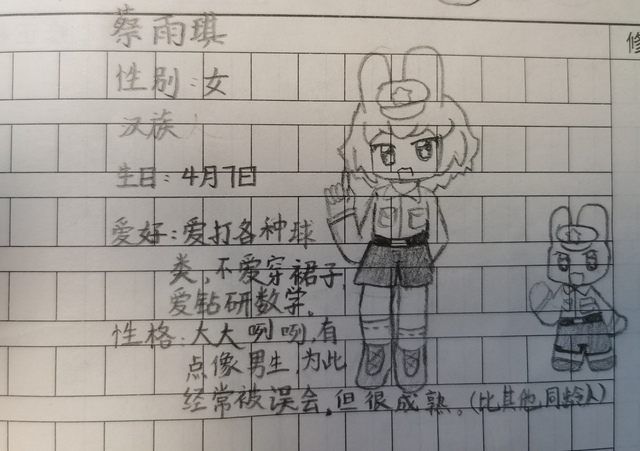 蔡雨琪
修
性别:女
汉族
生日:4月7日
爱好:爱打各种球
类,不爱穿裙子,
爱钻研数学。
性格:大大咧咧,有
点像男生,为此
经常被误会,但很成熟。(比其他同龄人)